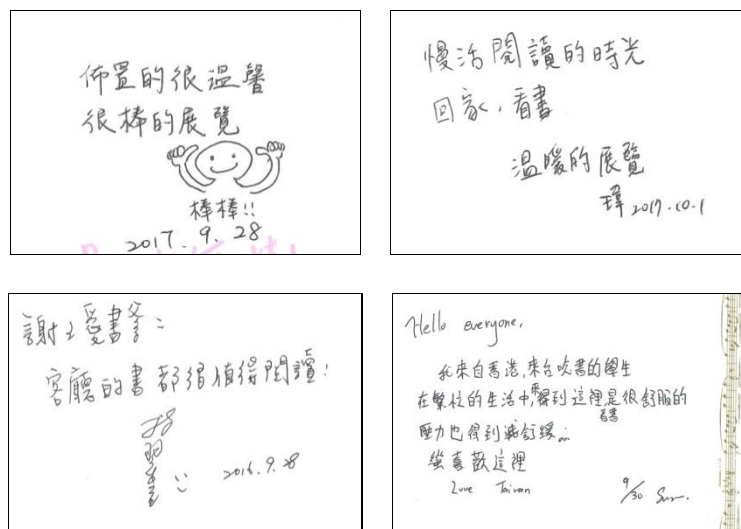 佈置的很溫馨
很棒的展覽
棒棒!!
2017.9.28
慢活閱讀的時光
回家,看書
溫暖的展覽
瑋 2017.10.1
謝謝愛書爹:
客廳的書都很值得閱讀!
2016.9.28
Hello everyone,
我來自香港,來台吹書的學生
在繁忙的生活中,來到這裡看書是很舒服的
壓力也得到減舒緩
蠻喜歡這裡
Love Taiwan
9/30